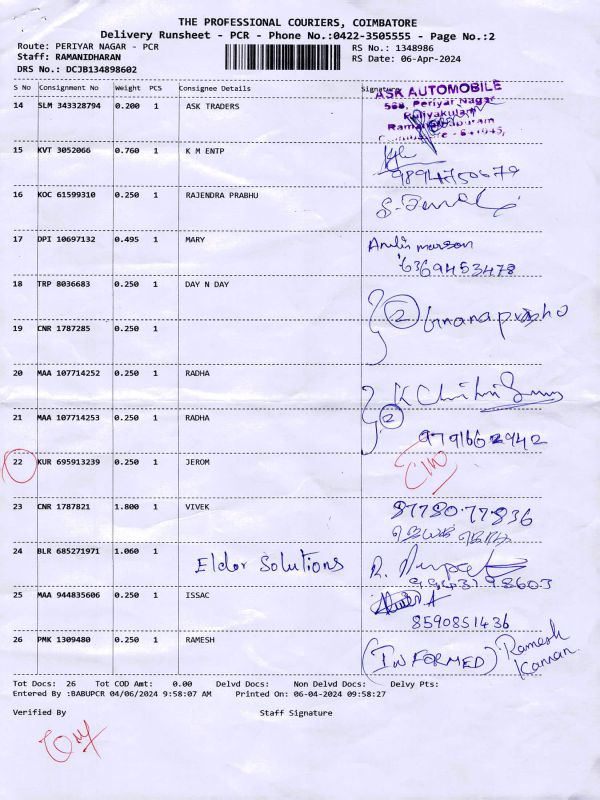 THE PROFESSIONAL COURIERS, COIMBATORE
Delivery Runsheet - PCR - Phone No.:0422-3505555 - Page No.:2
Route: PERIYAR NAGAR - PCR RS No.: 1348986
Staff: RAMANIDHARAN RS Date: 06-Apr-2024
DRS No.: DCJB134898602
S No Consignment No Weight PCS Consignee Details Signature
ASK AUTOMOBILE
14 SLM 343328794 0.200 1 ASK TRADERS
568, Periyar Nagar
Puliyakulam
15 KVT 3052066 0.760 1 K M ENTP
9894750679
16 KOC 61599310 0.250 1 RAJENDRA PRABHU
17 DPI 10697132 0.495 1 MARY
6369453478
18 TRP 8036683 0.250 1 DAY N DAY
2 Gnanaprabhu
19 CNR 1787285 0.250 1
20 MAA 107714252 0.250 1 RADHA
2
21 MAA 107714253 0.250 1 RADHA
9791662942
22 KUR 695913239 0.250 1 JEROM
23 CNR 1787821 1.800 1 VIVEK
87780.77836
24 BLR 685271971 1.060 1 Eldor Solutions
9943798603
25 MAA 944835606 0.250 1 ISSAC
8590851436
26 PMK 1309480 0.250 1 RAMESH
(INFORMED) Ramesh
Kannan
Tot Docs: 26 Tot COD Amt: 0.00 Delvd Docs: Non Delvd Docs: Delvy Pts:
Entered By :BABUPCR 04/06/2024 9:58:07 AM Printed On: 06-04-2024 09:58:27
Verified By Staff Signature